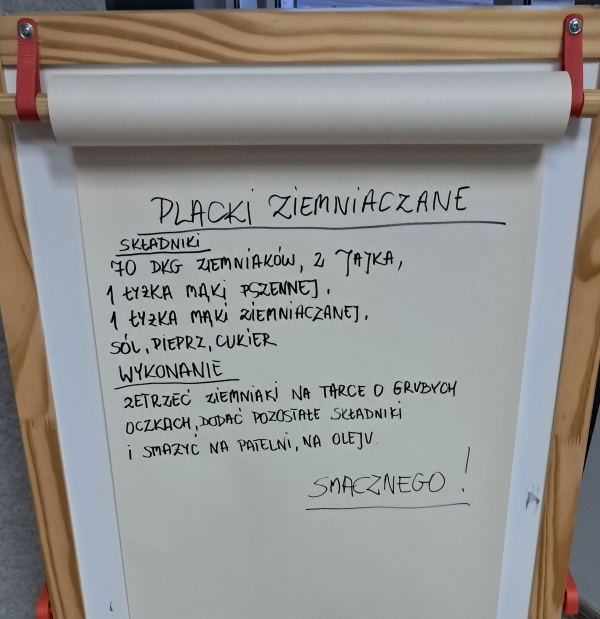 PLACKI ZIEMNIACZANE
SKŁADNIKI
70 DKG ZIEMNIAKÓW, 2 JAJKA,
1 ŁYŻKA MĄKI PSZENNEJ,
1 ŁYŻKA MĄKI ZIEMNIACZANEJ,
SÓL, PIEPRZ, CUKIER
WYKONANIE
ZETRZEĆ ZIEMNIAKI NA TARCE O GRUBYCH
OCZKACH, DODAĆ POZOSTAŁE SKŁADNIKI
i SMAŻYĆ NA PATELNI, NA OLEJU.
SMACZNEGO!